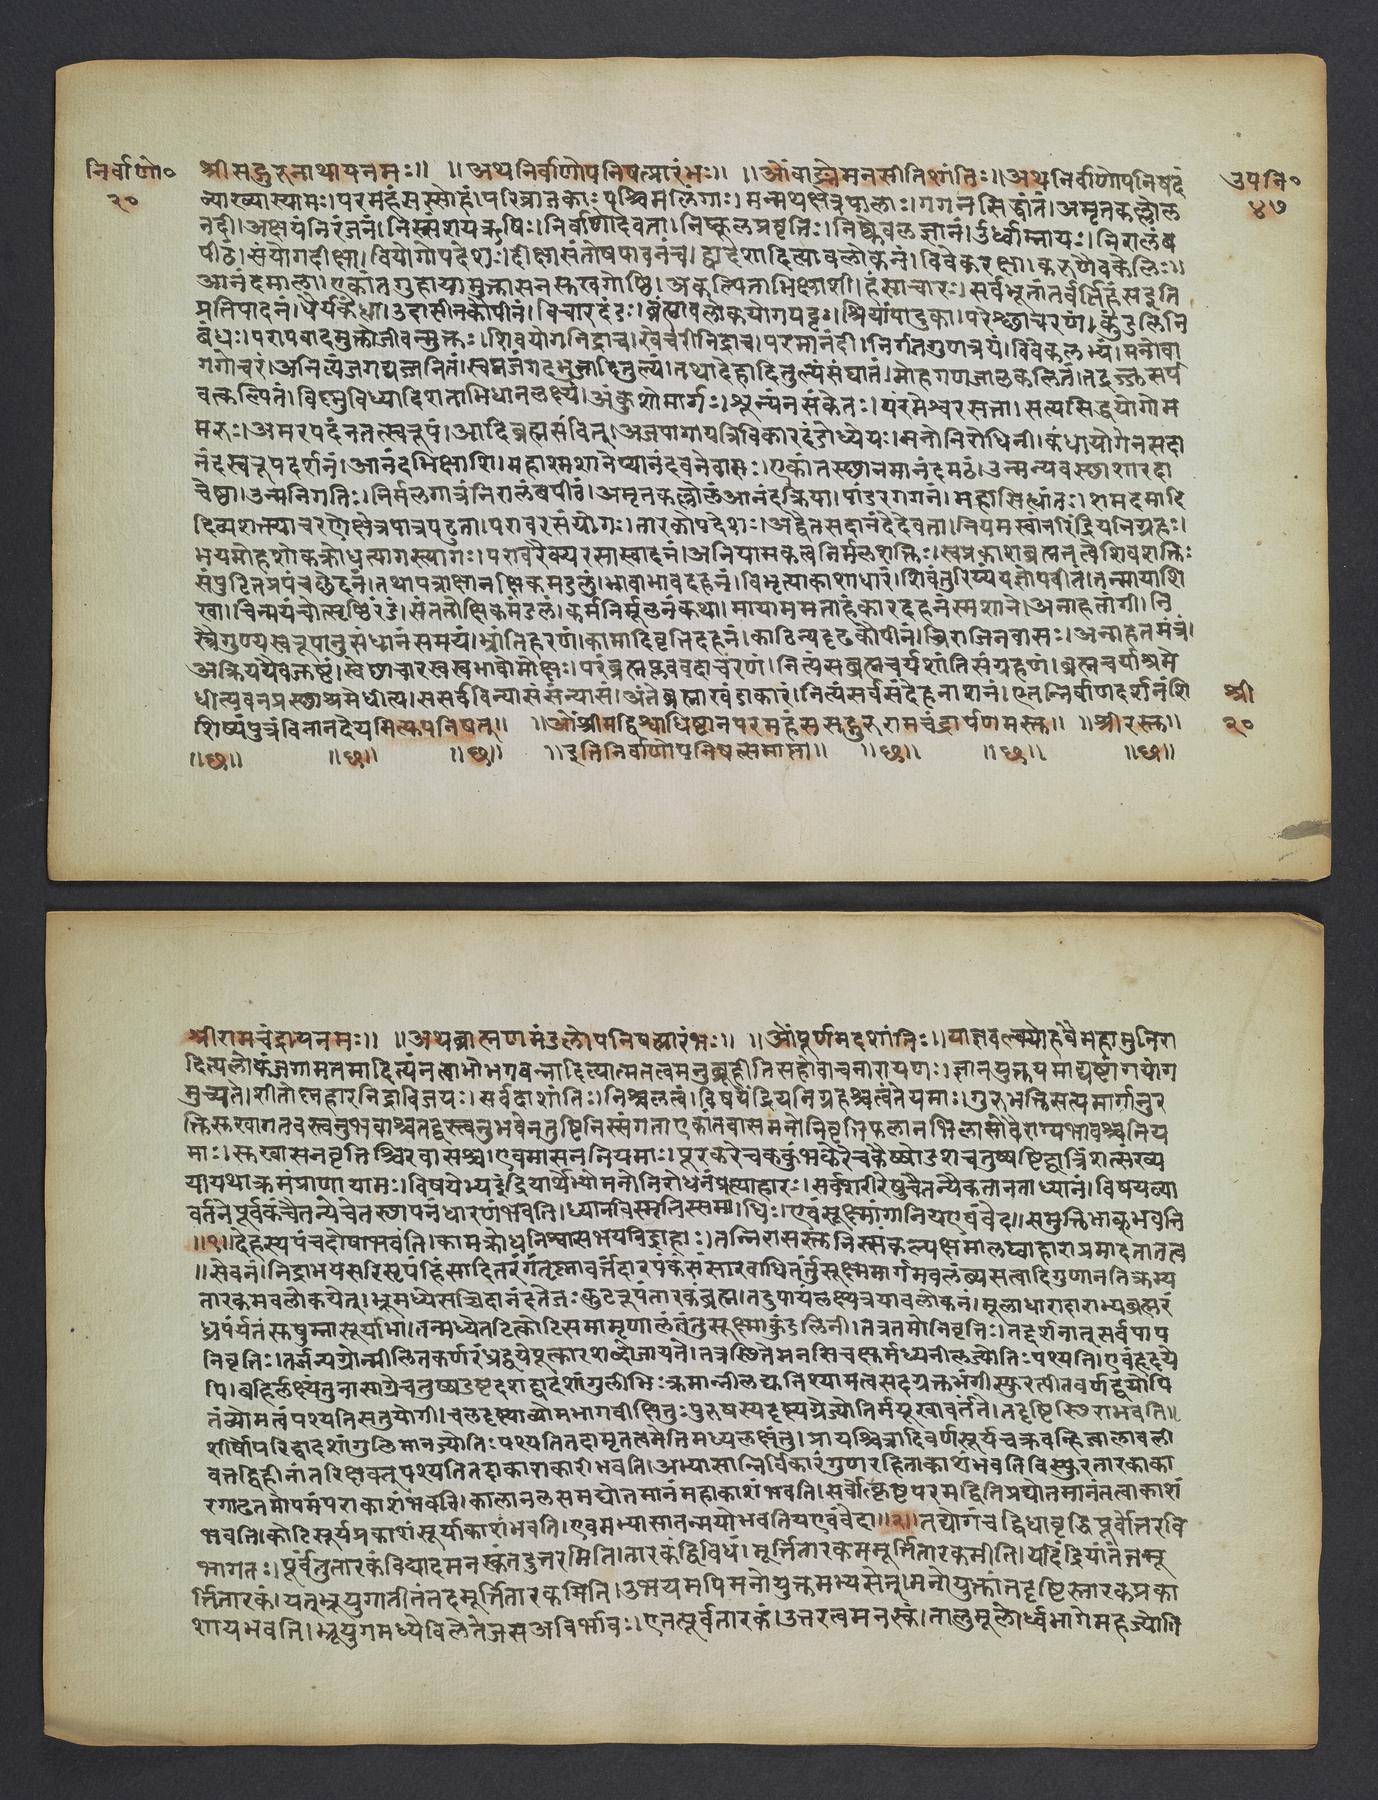 निर्वाणो०
२०
उपनि०
४७
श्रीसद्गुरुनाथायनमः॥ ॥अथनिर्वाणोपनिषत्प्रारंभः॥ ॥ओंवाङ्मेमनसीतिशांतिः॥अथनिर्वाणोपनिषदं
व्याख्यास्यामः।परमहंसस्सोहं।परिव्राजकाः पश्चिमलिंगाः।मन्मथक्षेत्रपालाः।गगनसिद्धांतं।अमृतकल्लोल
नदी।अक्षयंनिरंजनं।निस्संशयऋषिः।निर्वाणोदेवता।निष्कूलप्रवृत्तिः।निष्केवलज्ञानं।उर्ध्वाम्नायः।निरालंब
पीठं।संयोगदीक्षा।वियोगोपदेशः।दीक्षासंतोषपावनंच।द्वादशादित्यावलोकनं।विवेकरक्षा।करुणैवकेलिः॥
आनंदमाला।एकांतगुहायामुक्तासनसुखगोष्ठि।अकल्पिताभिक्षाशी।हंसाचारः।सर्वभूतांतर्वर्त्तिहंसइति
प्रतिपादनं।धैर्यकंथा।उदासीनकौपीनं।विचारदंडः।ब्रह्मावलोकयोगपट्टः।श्रियांपादुका।परेच्छाचरणं।कुंडलिनि
बंधः।परापवादमुक्तोजीवन्मुक्तः।शिवयोगनिद्राच।खेचरीनिद्राच।परमानंदी।निर्गतगुणत्रयं।विवेकलभ्यं।मनोवा
गगोचरं।अनित्यंजगद्यज्जनितं।स्वप्नजगदभ्रगजादितुल्यं।तथादेहादितुल्यंसंघातं।मोहगणजालकलितं।तद्रज्जुसर्प
वत्कल्पितं।विष्णुविध्यादिशताभिधानलक्ष्यं।अंकुशोमार्गः।शून्यंनसंकेतः।परमेश्वरसत्ता।सत्यसिद्धयोगोम
मठः।अमरपदंनतत्स्वरूपं।आदिब्रह्मसंवित्।अजपागायत्रिविकारदंडोध्येयः।मनोनिरोधिनी।कंथायोगेनसदा
नंदस्वरूपदर्शनं।आनंदभिक्षाशि।महाश्मशानेप्यानंदवनेवासः।एकांतस्छानमानंदमठं।उन्मन्यवस्छाशारदा
चेष्ठा।उन्मनिगतिः।निर्मलगात्रंनिरालंबपीठं।अमृतकल्लोलंआनंदक्रिया।पांडरगगनं।महासिद्धांतः।शमदमादि
दिव्यशक्त्याचरणेक्षेत्रपात्रपटुता।परावरसंयोगः।तारकोपदेशः।अद्वैतसदानंदेदेवता।नियमस्वांतरिंद्रियनिग्रहः।
भयमोहशोकक्रोधत्यागस्त्यागः।परावरैक्यरसास्वादनं।अनियामकत्वनिर्मलशक्तिः।स्वप्रकाशब्रह्मतत्वेशिवशक्तिः
संपुटितप्रपंचछेदनं।तथापत्राक्षाक्षिकमंडलुं।भावाभावदहनं।विभृत्याकाशाधारं।शिवंतुरिय्ययज्ञोपवीतं।तन्मायाशि
खा।चिन्मयंचोत्सृष्ठिदंडं।संततोक्षिकमंडलं।कर्मनिर्मूलनंकथा।मायाममताहंकारदहनंस्मशाने।अनाहतांगी।नि
स्त्रैगुण्यस्वरूपानुसंधानंसमयं।भ्रांतिहरणं।कामादिवृत्तिदहनं।काठिन्यदृढकौपीनं।चिराजिनवासः।अनाहतमंत्रं।
अक्रिययैवजुष्टं।स्वछाचारस्वस्वभावोमोक्षः।परंब्रह्मप्लववदाचरणं।नित्यंसब्रह्मचर्यशांतिसंग्रहणं।ब्रह्मचर्याश्रमे
धीत्यवनप्रस्छाश्रमेधीत्य।ससर्वविन्यासंसंन्यासं।अंतेब्रह्माखंडाकारं।नित्यंसर्वसंदेहनाशनं।एतन्निर्वाणदर्शनंशि
शिष्यंपुत्रंविनानदेयमित्युपनिषत्॥ ॥ओंश्रीमद्विश्वाधिष्ठानपरमहंससद्गुरुरामचंद्रार्पणमस्तु॥ ॥श्रीरस्तु॥
॥छ॥ ॥छ॥ ॥छ॥ ॥इतिनिर्वाणोपनिषत्समाप्ता॥ ॥छ॥ ॥छ॥ ॥छ॥
श्री
२०
श्रीरामचंद्रायनमः॥ ॥अथब्राह्मणमंडलोपनिषत्प्रारंभः॥ ॥ओंपूर्णमदशांतिः॥याज्ञवल्क्योहवैमहामुनिरा
दित्यलोकंजगामतमादित्यंनत्वाभोभगवन्नादित्यात्मतत्वमनुब्रूहीतिसहोवाचनारायणः।ज्ञानयुक्तयमाद्यष्टांगयोग
मुच्यते।शीतोष्णहारनिद्राविजयः।सर्वदाशांतिः।निश्चलत्वं।विषयेंद्रियनिग्रहश्चत्वेतेयमाः।गुरुभक्तिसत्यमार्गानुर
क्तिसुखागतवस्त्वनुभवाश्चतद्वस्त्वनुभवेनतुष्टिनिस्संगताएकांतवासमनोनिवृत्तिफलानभिलासोवैराग्यभावश्चनिय
माः।सुखासनवृत्तिश्चिरवासश्च।एवमासननियमाः।पूरकरेचककुंभकैरेचकैष्षोडशचतुष्षष्टिद्वात्रिंशत्संख्य
यायथाक्रमंप्राणायामः।विषयेभ्यइंद्रियार्थेभ्योमनोनिरोधनंप्रत्याहारः।सर्वशरीरेषुचैतन्यैकतानताध्यानं।विषयव्या
वर्तनपूर्वकंचैतन्येचेतस्छापनंधारणंभवति।ध्यानविस्मृतिस्समाधिः।एवंसूक्ष्मांगानियएवंवेद॥समुक्तिभाक्भवति
॥१॥देहस्यपंचदोषाभवंति।कामक्रोधनिश्वासभयनिद्राहाः।तन्निराससुक्तनिस्संकल्पक्षमालघ्वाहाराप्रमादतातत्व
॥सेवनं।निद्राभयसरिसृपंहिंसादितरंगंतृष्णावर्त्तंदारपंकंसंसारवार्धितर्त्तुंसूक्ष्ममार्गमवलंब्यसत्वादिगुणानतिक्रम्य
तारकमवलोकयेत्।भ्रूमध्येसच्चिदानंदतेजःकूटरूपंतारकंब्रह्म।तदुपायंलक्ष्यत्रयावलोकनं।मूलाधारादारभ्यब्रह्मरं
ध्रपर्यतंसुषुम्नासूर्याभा।तन्मध्येतटित्कोटिसमामृणालतंतुसूक्ष्माकुंडलिनी।तत्रतमोनिवृत्तिः।तदर्शनात्सर्वपाप
निवृत्तिः।तर्जन्यग्रोन्मीलितकर्णरंध्रद्वयेपूत्कारशब्दोजायते।तत्रस्छितेमनसिचक्षुर्मध्यनीलज्योतिःपश्यति।एवंहृदये
पि।बहिर्लक्ष्यंतुनासाग्रेचतुष्षडष्टदशद्वादशांगुलीभिःक्रमान्नीलद्युतिश्यामत्वसदृग्रक्तभंगीस्फुरत्पीतवर्णद्वयोपि
तंव्योमत्वंपश्यतिसतुयोगी।चलदृष्ट्याव्योमभागवीक्षितुःपुरुषस्यदृष्ट्यग्रेज्योतिर्मयूखावर्तंते।तदृष्टिस्छिराभवति॥
शीर्षोपरिद्वादशांगुलिमानज्योतिःपश्यतितदामृतत्वमेतिमध्यलक्ष्यंतु।प्रायश्चित्रादिवर्णसूर्यचक्रवन्हिज्वालावली
वत्तद्विहीनांतरिक्षवत्पश्यतितदाकाराकारीभवति।अभ्यासान्निर्विकारंगुणरहिताकाशंभवतिविस्फुरतारकाका
रगाढतमोपमंपराकाशंभवति।कालानलसमद्योतमानंमहाकाशंभवति।सर्वोत्कृष्टपरमद्वितिप्रद्योतमानंतत्वाकाशं
भवति।कोटिसूर्यप्रकाशंसूर्याकाशंभवति।एवमभ्यासातन्मयोभवतियएवंवेद॥२॥तद्योगंचद्विधावृद्धिपूर्वोत्तरवि
भागतः।पूर्वंतुतारकंविद्यादमनस्कंतदुत्तरमिति।तारकंद्विविधं।मूर्तितारकममूर्तितारकमीति।यदिंद्रियांतंतन्मू
र्त्तितारकं।यत्भ्रूयुगातीतंतदमूर्त्तितारकमिति।उभयमपिमनोयुक्तमभ्यसेत्।मनोयुक्तांतदृष्टिस्तारकप्रका
शायभवति।भ्रूयुगमध्येबिलेतेजसअविर्भावः।एतत्पूर्वतारकं।उत्तरत्वमनस्कं।तालुमूलोर्ध्वभागेमहज्योति